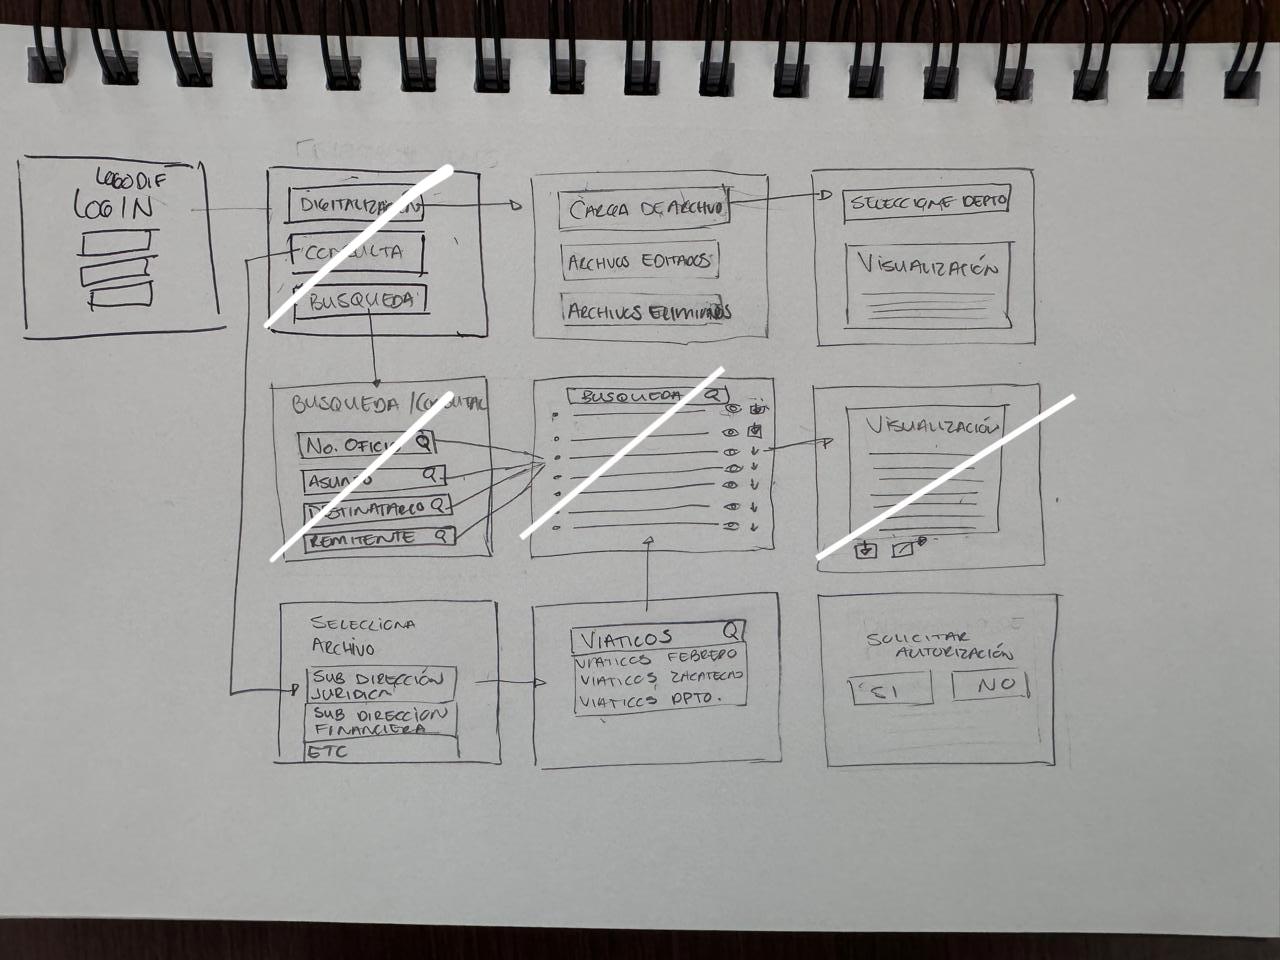 LOGO DIF
LOGIN
DIGITALIZACIÓN
CONSULTA
BUSQUEDA
CARGA DE ARCHIVO
ARCHIVOS EDITADOS
ARCHIVOS ELIMINADOS
SELECCIONE DEPTO
VISUALIZACIÓN
BUSQUEDA /CONSULTA
No. OFICIO
ASUNTO
DESTINATARIO
REMITENTE
BUSQUEDA
VISUALIZACIÓN
SELECCIONA
ARCHIVO
SUB DIRECCIÓN
JURIDICA
SUB DIRECCION
FINANCIERA
ETC
VIATICOS
VIATICOS FEBRERO
VIATICOS ZACATECAS
VIATICOS DPTO.
SOLICITAR
AUTORIZACIÓN
SI
NO